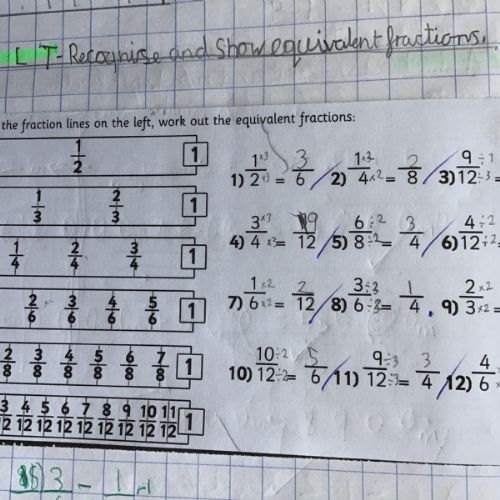 L T - Recognise and show equivalent fractions.
the fraction lines on the left, work out the equivalent fractions:
1/2 1
1/3 2/3 1
1/4 2/4 3/4 1
2/6 3/6 4/6 5/6 1
2/8 3/8 4/8 5/8 6/8 7/8 1
3/12 4/12 5/12 6/12 7/12 8/12 9/12 10/12 11/12 1
1) 1×3/2×3 = 3/6 2) 1×2/4×2 = 2/8 3) 9÷3/12÷3 =
4) 3×3/4×3 = 9/12 5) 6÷2/8÷2 = 3/4 6) 4÷2/12÷2 =
7) 1×2/6×2 = 2/12 8) 3÷3/6÷3 = 1/4 . 9) 2×2/3×2 =
10) 10÷2/12÷2 = 5/6 11) 9÷3/12÷3 = 3/4 12) 4/6
3 - 1